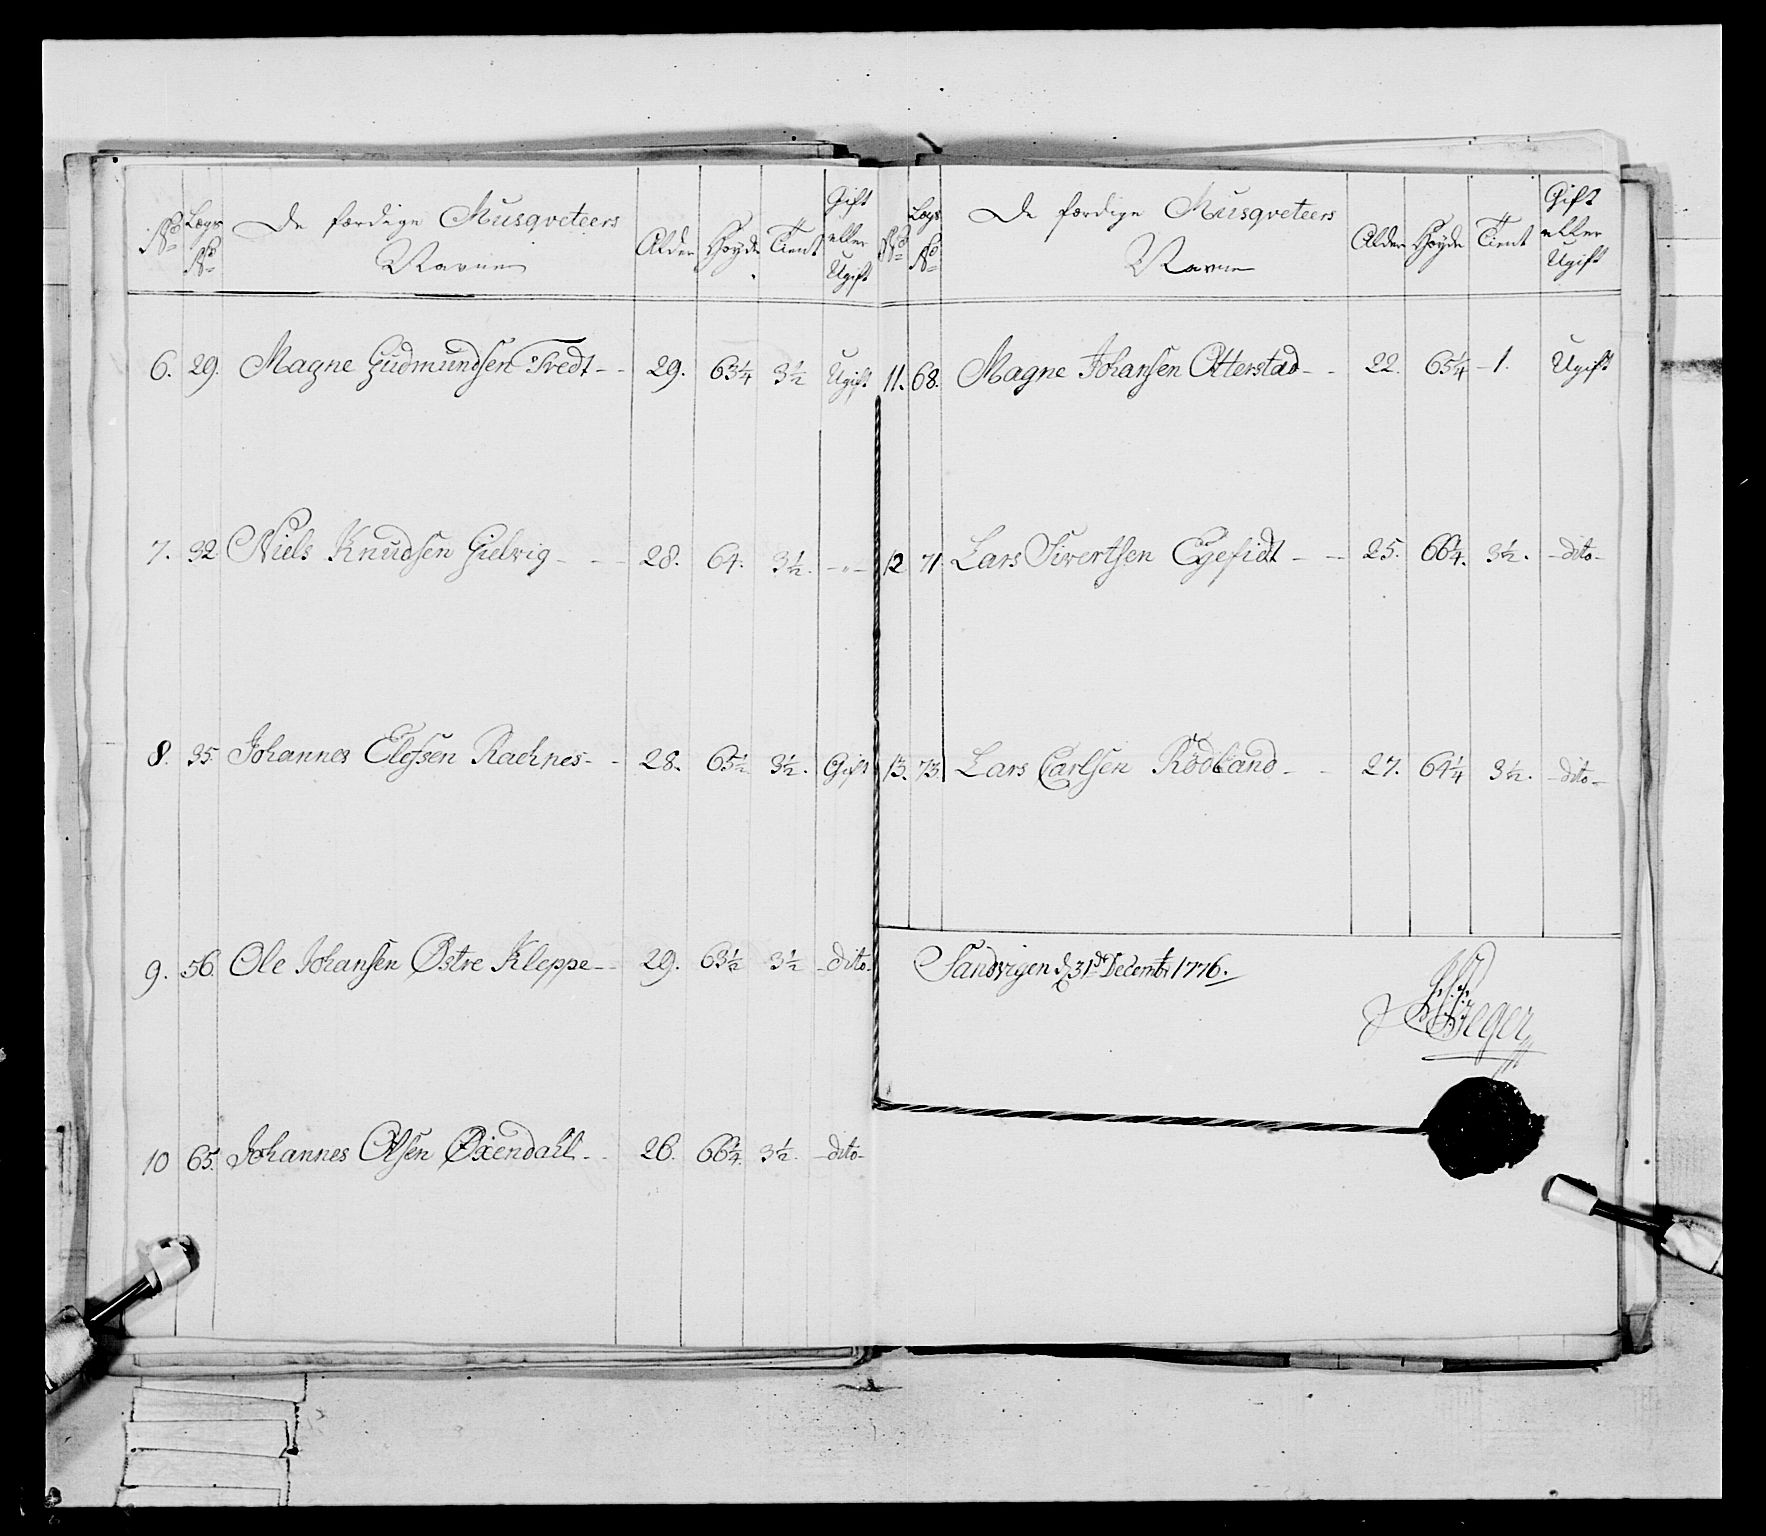 No Lægs No De færdige Musqveteers Navne Alder Høyde Tient Gift eller Ugift
6. 29. Magne Gudmundsen Tvedt - - 29. 63¼ 3½ Ugift
7. 32. Niels Knudsen Gielvig - - - 28. 64. 3½. - " -
8. 35. Johannes Elefsen Racknes - - 28. 65½ 3½. Gift
9. 56. Ole Johansen Østre Kleppe - - 29. 63½ 3½ - dito -
10 65. Johannes Olsen Øxendahl - - 26. 66¼ 3½. - dito -
No Lægs No De færdige Musqveteers Navne Alder Høyde Tient Gift eller Ugift
11. 68. Magne Johansen Otterstad - - 22. 65¼ - 1. Ugift
12 71. Lars Sivertsen Egefidt - - 25. 66¼. 3½. - dito -
13. 73. Lars Carlsen Rödland - - 27. 64¼ 3½. - dito -
Sandvigen d 31te Decembr 1776.